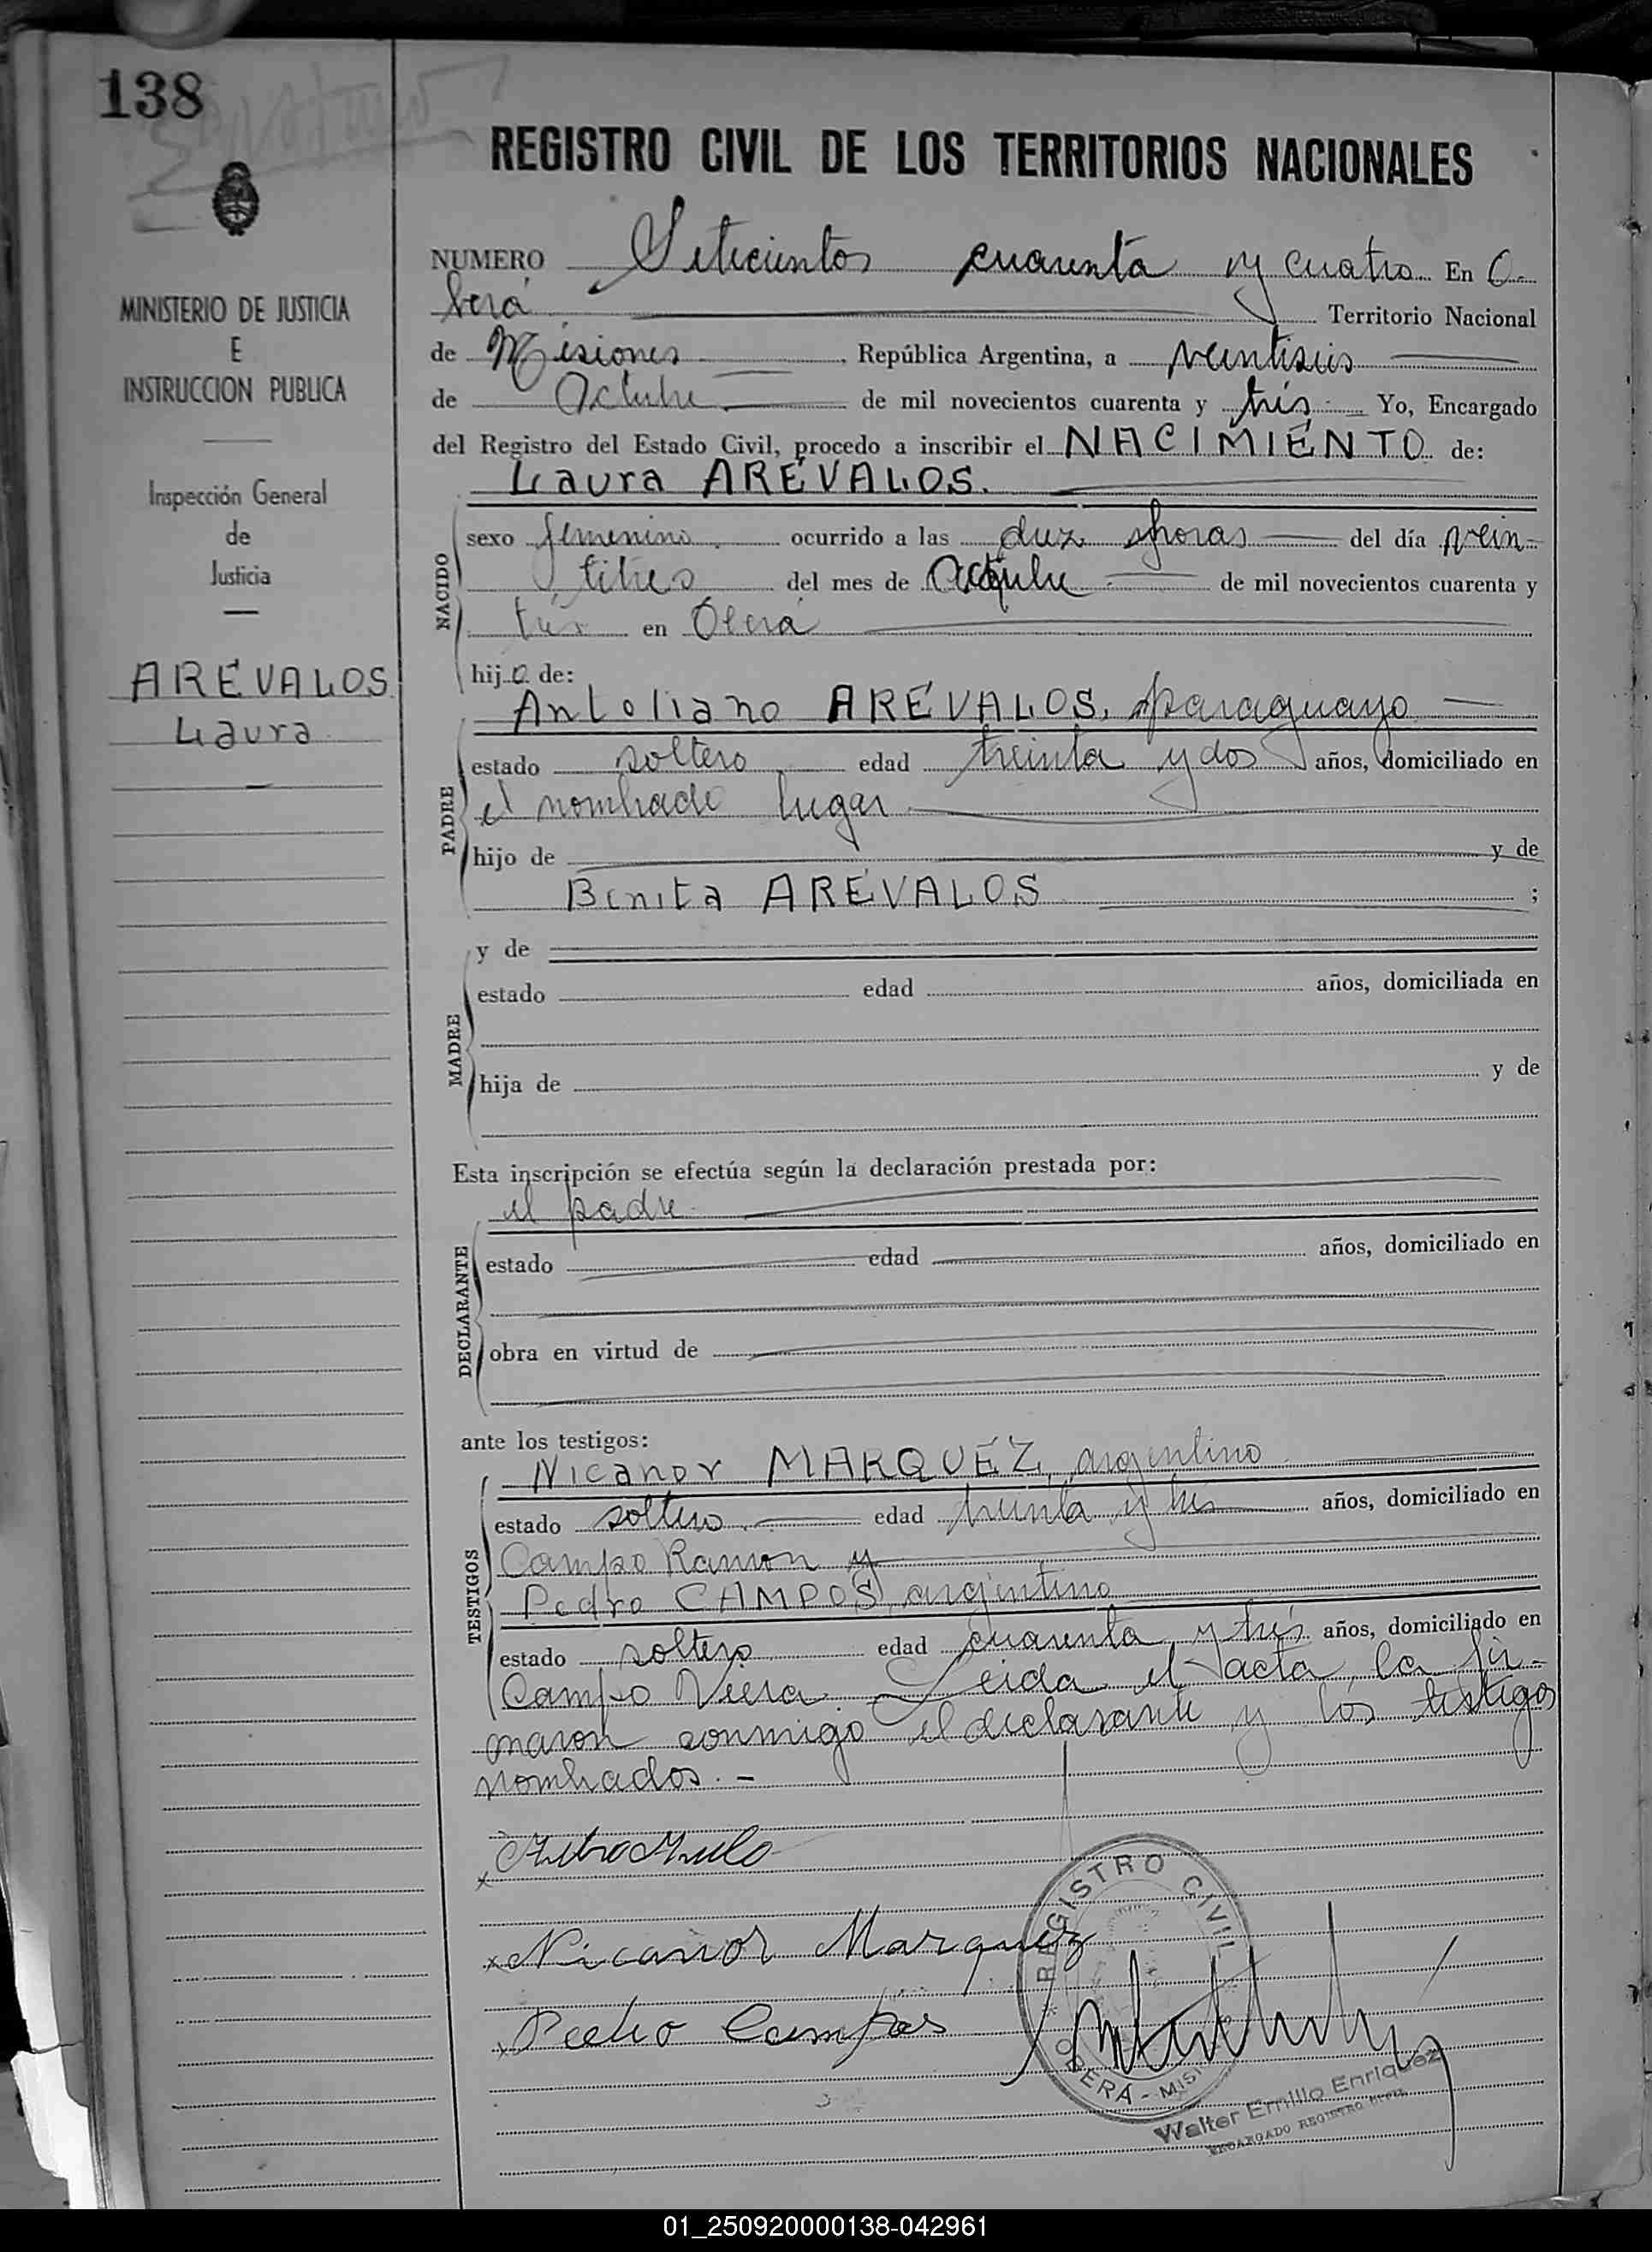 138
REGISTRO CIVIL DE LOS TERRITORIOS NACIONALES
MINISTERIO DE JUSTICIA
E
INSTRUCCION PUBLICA
Inspección General
de
Justicia
AREVALOS
Laura
NUMERO Seteciento cuarenta y cuatro En O-
berá Territorio Nacional
de Misiones, República Argentina, a veintiseis
de Octubre de mil novecientos cuarenta y trés Yo, Encargado
del Registro del Estado Civil, procedo a inscribir el NACIMIENTO de:
Laura AREVALOS.
NACIDO
sexo femenino. ocurrido a las diez horas del día vein-
titres del mes de Octubre de mil novecientos cuarenta y
trés en Oberá
hija de:
PADRE
Antoliano AREVALOS, paraguayo
estado soltero edad treinta y dos años, domiciliado en
el nombrado lugar
hijo de y de
Benita AREVALOS ;
MADRE
y de
estado edad años, domiciliada en
hija de y de
Esta inscripción se efectúa según la declaración prestada por:
el padre
DECLARANTE
estado edad años, domiciliado en
obra en virtud de
ante los testigos:
TESTIGOS
Nicanor MARQUEZ, argentino
estado soltero edad treinta y trés años, domiciliado en
Campo Ramon y
Pedro CAMPOS, argentino
estado soltero edad cuarenta y trés años, domiciliado en
Campo Viera Leida el acta, la fir-
maron conmigo el declarante y los testigos
nombrados. -
x
x Nicanor Marquez
x Pedro Campos
REGISTRO CIVIL
OBERÁ - MISI
Walter Emilio Enriquez
ENCARGADO REGISTRO
01_250920000138-042961